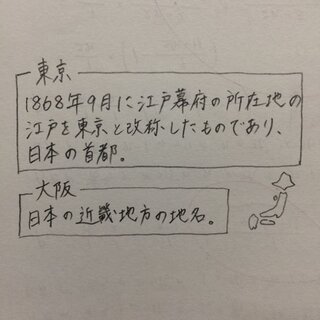 東京
1868年9月に江戸幕府の所在地の
江戸を東京と改称したものであり、
日本の首都。
大阪
日本の近畿地方の地名。